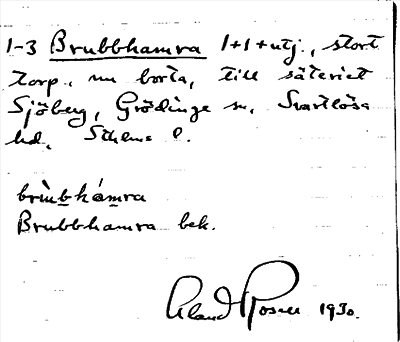 1-3 Brubbhamra 1+1+utj., stort
torp, nu borta, till säteriet
Sjöberg, Grödinge sn, Svartlösa
hd, Sthlms l.
brùbhámra
Brubbhamra bek.
Roser 1930.